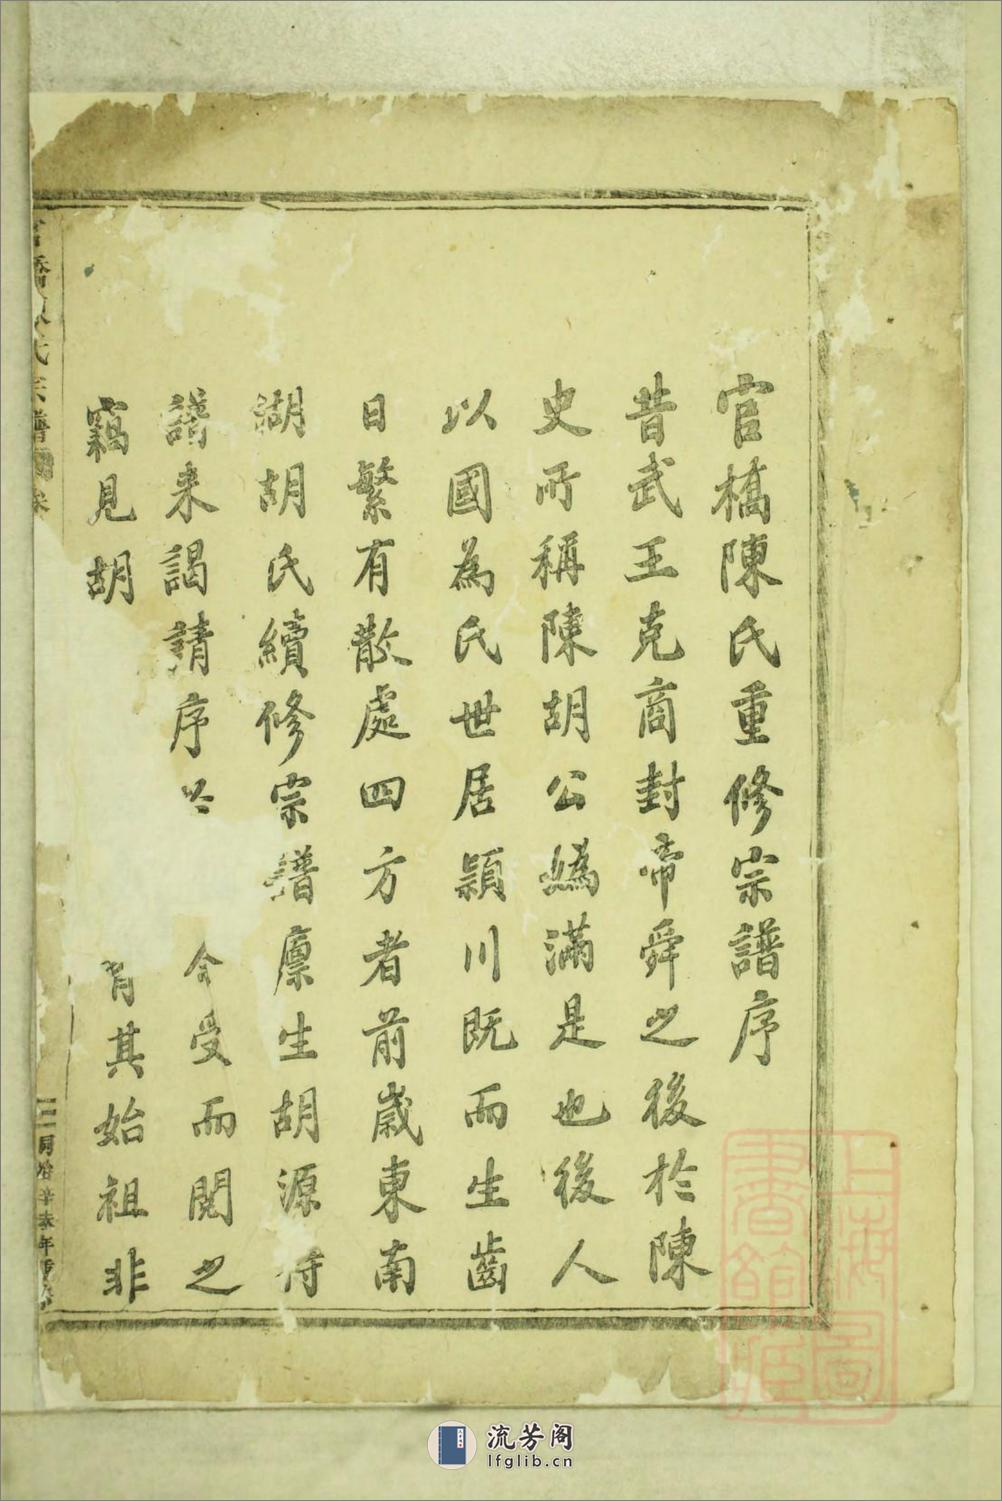 官橋陳氏重修宗譜序
昔武王克商封帝舜之後於陳
史所稱陳胡公媯滿是也後人
以國為氏世居潁川既而生齒
日繁有散處四方者前歲東南
湖胡氏續修宗譜廩生胡源持
譜來謁請序於 今受而閱之
竊見胡 其始祖非
橋 氏宗譜 卷
同治辛未年重修
上海圖書館藏
流芳阁
lfglib.cn